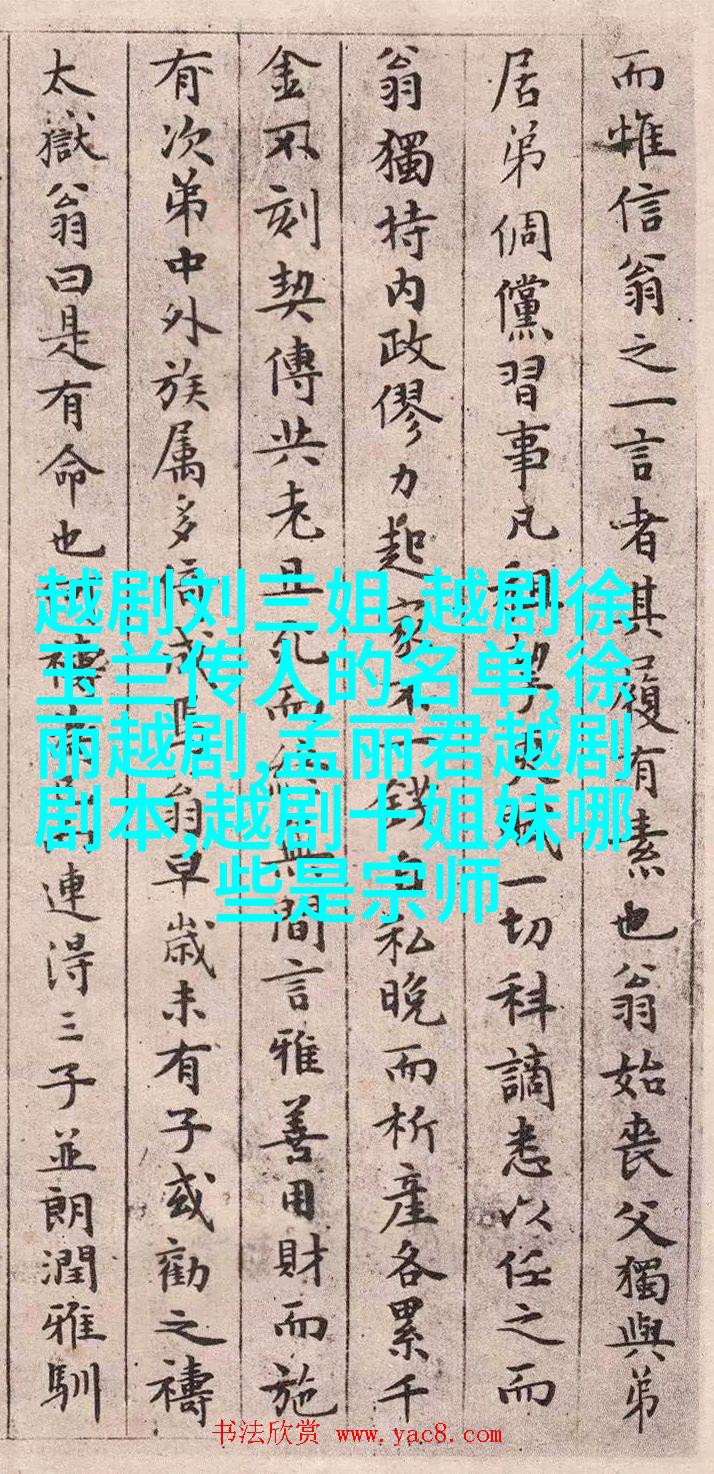 而惟信翁之一言者其履有素也翁始喪父獨與弟
居弟倜儻習事凡租賦一切科謫悉以任之而
翁獨持内政僇力起家不一錢自私晚而析產各累千
金不刻契傳共老且死而無間言雅善用財而施
有次弟中外族属多翁早歲未有子或勸之禱
太嶽翁曰是有命也連淂三子並朗潤雅馴
越剧刘三姐,越剧徐
玉兰传人的名单,徐
丽越剧,孟丽君越剧
剧本,越剧十姐妹哪
些是宗师
书法欣赏 www.yac8.com